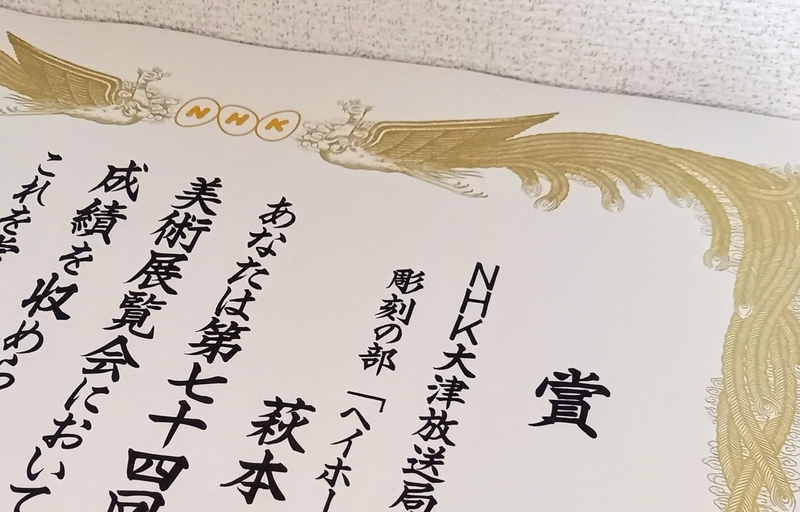 NHK
賞
NHK大津放送局
彫刻の部 「ヘイホー
萩本
あなたは第七十四回
美術展覧会において
成績を収めら
これを賞